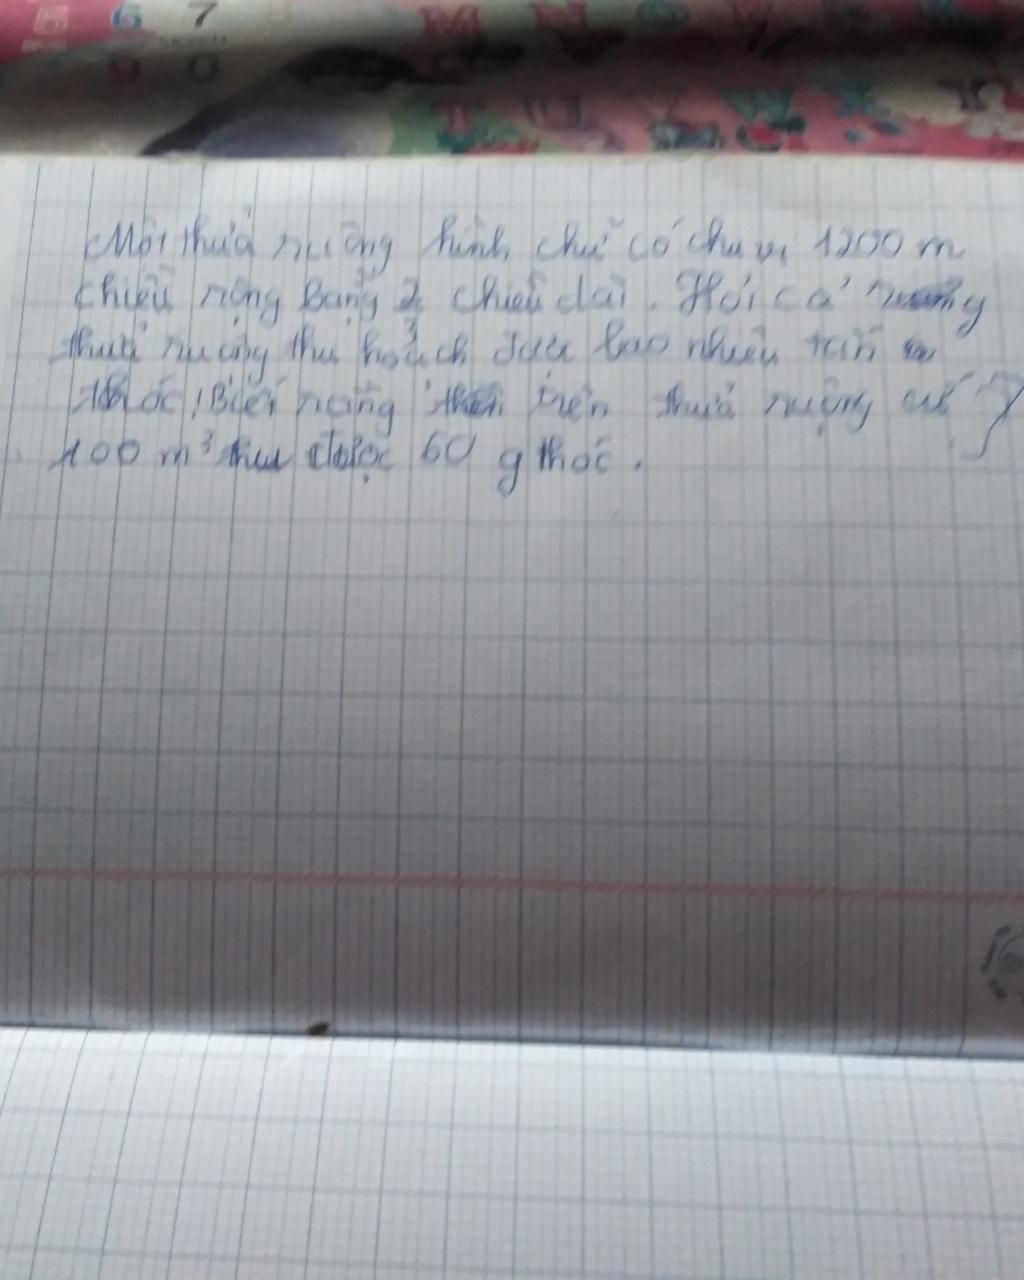 6 7
9 0
M N O V
T U V X Y
Một thửa ruộng hình chữ có chu vi 1200 m
chiều rộng bằng 2 chiều dài. Hỏi cả ruộng
3
thửa ruộng thu hoạch được bao nhiêu tấn
thóc, Biết rằng trên thửa ruộng cứ
100 m³ thu được 60 g thóc.